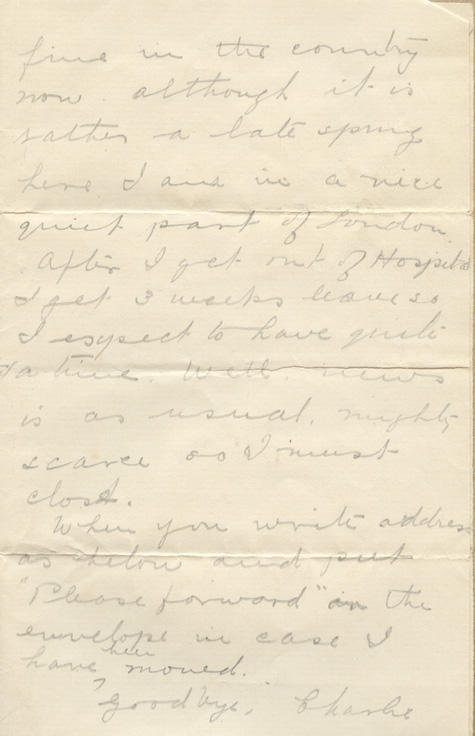 fine in the country
now. although it is
rather a late spring
here I am in a nice
quiet part of London.
After I get out of Hospital
I get 3 weeks leave so
I expect to have quite
a time. Well. news
is as usual. mighty
scarce so I must
close.
When you write address
as below and put
"Please forward" on the
envelope in case I
have been moved.
"goodbye," Charlie